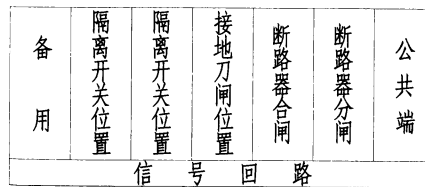 备用
隔离开关位置
隔离开关位置
接地刀闸位置
断路器合闸
断路器分闸
公共端
信号回路